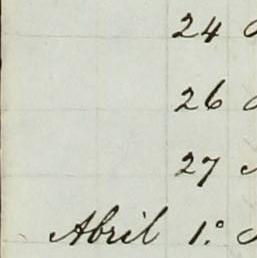 24
26
27
Abril 1º